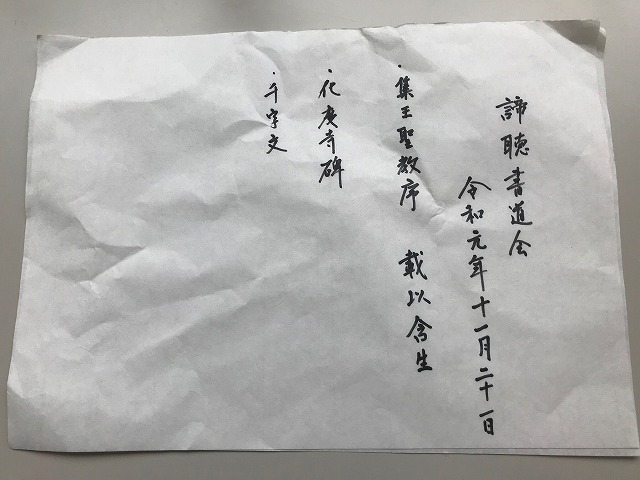 諦聴書道会
令和元年十一月二十一日
・集王聖教序　載以含生
・化度寺碑
・千字文